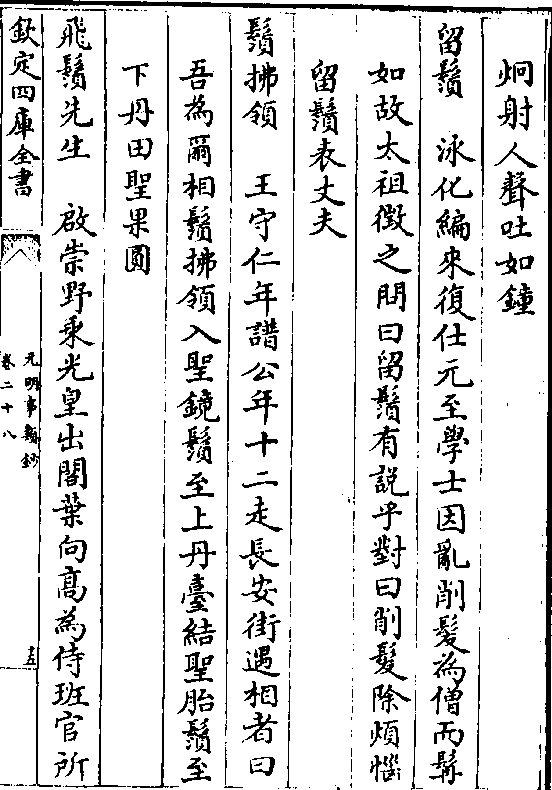 炯射人聲吐如鐘
留鬚　泳化編來復仕元至學士因亂削髮為僧而髯
如故太祖徵之問曰留鬚有説乎對曰削髮除煩惱
留鬚表丈夫
鬚拂領　王守仁年譜公年十二走長安街遇相者曰
吾為爾相鬚拂領入聖鏡鬚至上丹臺結聖胎鬚至
下丹田聖果圓
飛鬚先生　啟崇野乘光皇出閣葉向髙為侍班官所
欽定四庫全書
元明事類鈔
卷二十八
十五